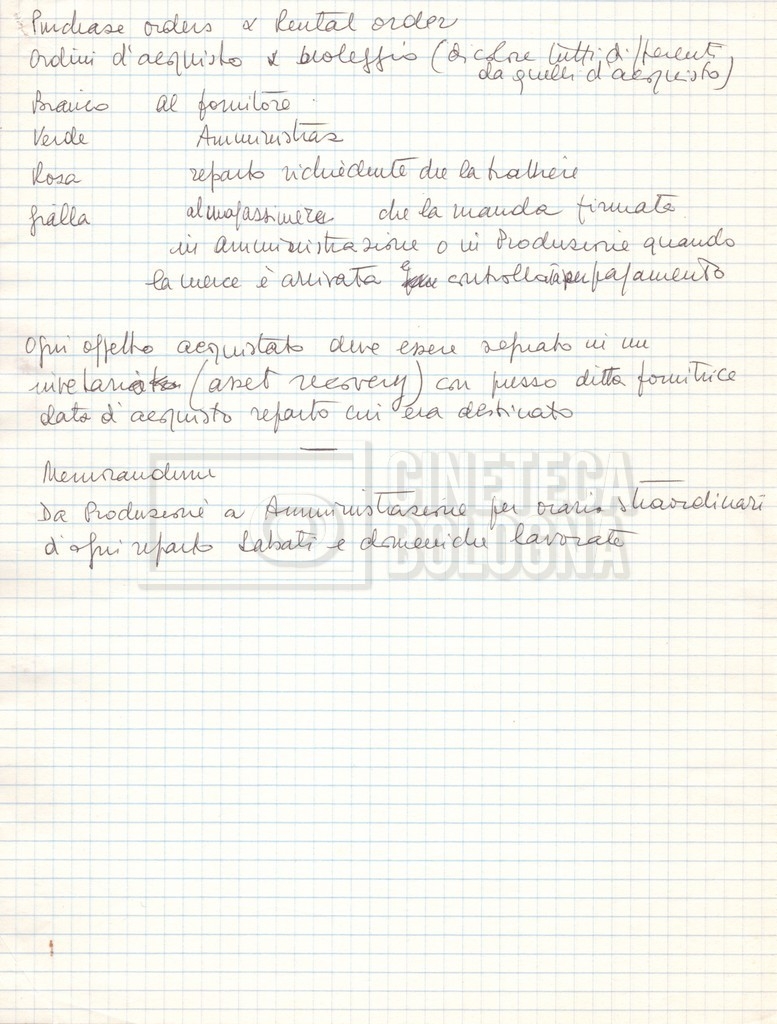 Purchase orders & Rental order
Ordini d'acquisto & noleggio (di colore tutti differenti
da quelli d'acquisto)
Bianco al fornitore
Verde Amministraz
Rosa reparto richiedente che la trattiene
gialla al magazziniere che la manda firmata
in amministrazione o in Produzione quando
la merce è arrivata e controllata per pagamento
Ogni oggetto acquistato deve essere segnato in un
(asset recovery) con prezzo ditta fornitrice
data d'acquisto reparto cui era destinato
Memorandum
Da Produzione a Amministrazione per orario straordinari
d'ogni reparto Sabati e domeniche lavorate
CINETECA
BOLOGNA